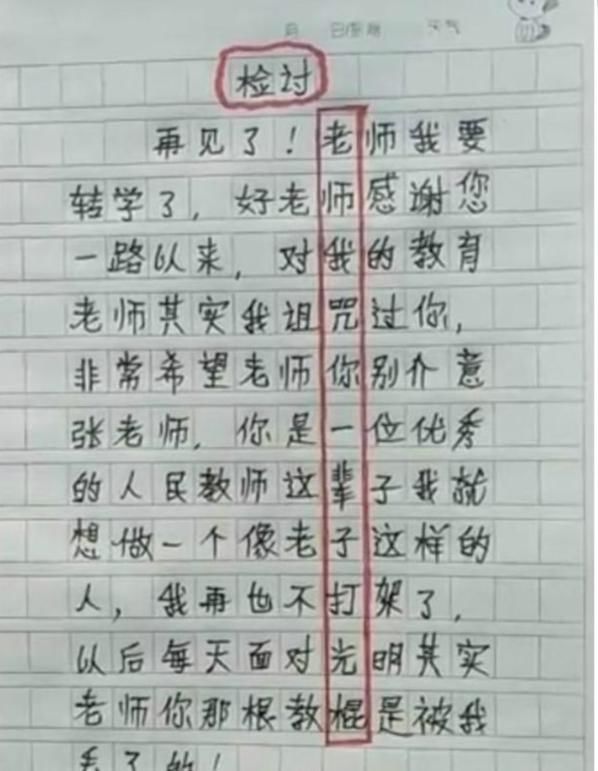 月 日 星期 天气
检讨
再见了！老师我要
转学了，好老师感谢您
一路以来，对我的教育
老师其实我诅咒过你，
非常希望老师你别介意
张老师，你是一位优秀
的人民教师这辈子我就
想做一个像老子这样的
人，我再也不打架了，
以后每天面对光明其实
老师你那根教棍是被我
丢了的！